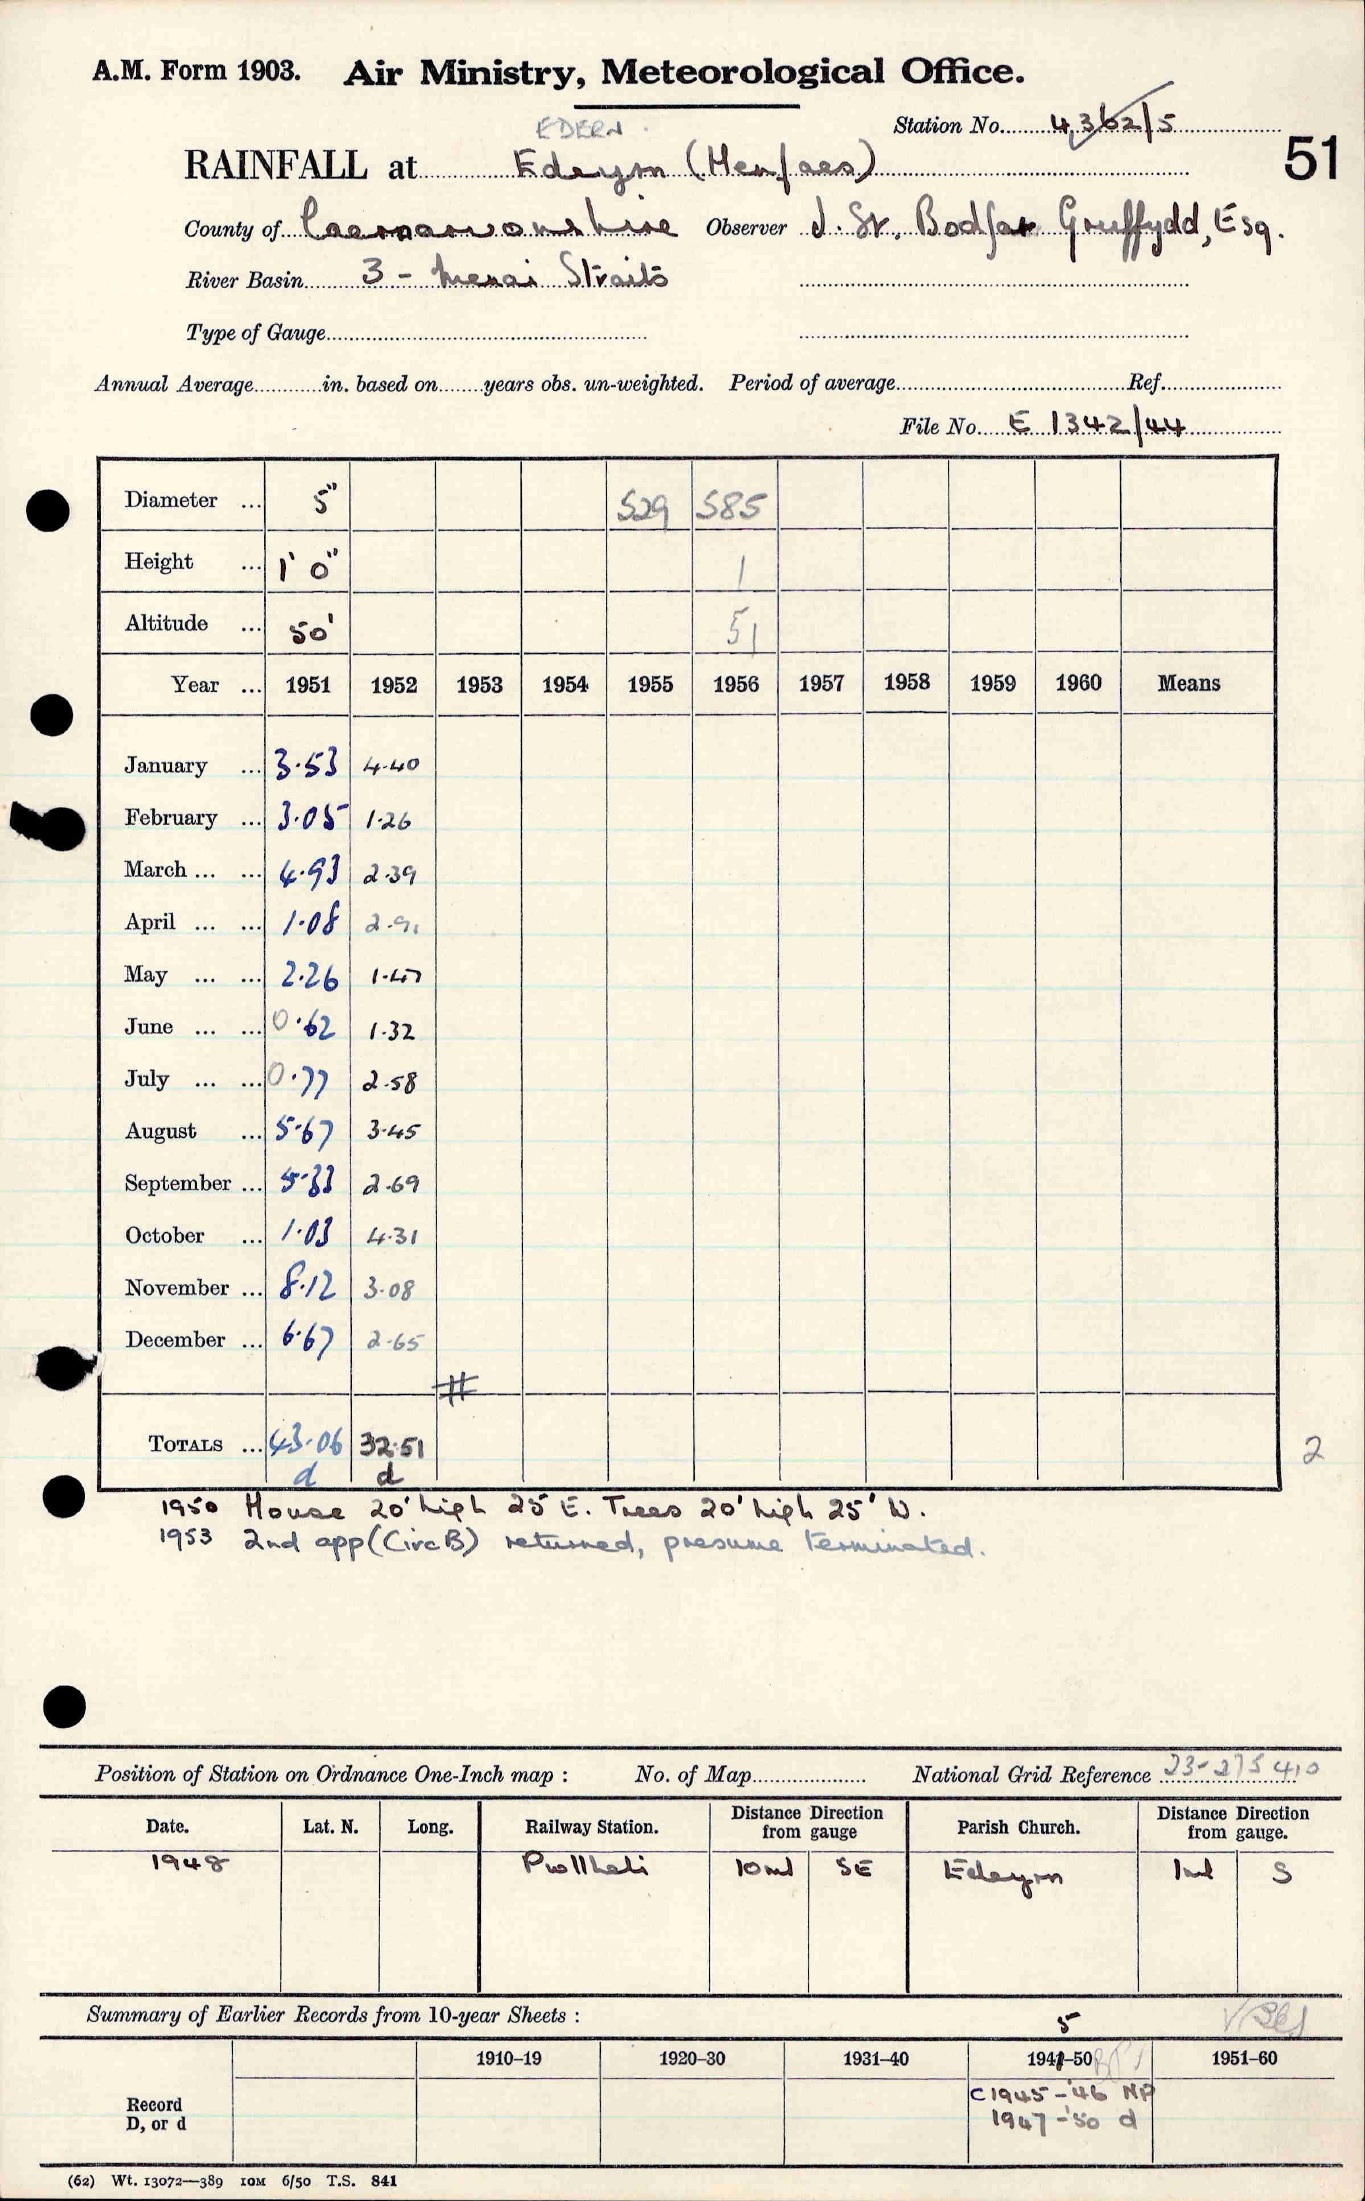 A.M. Form 1903. Air Ministry, Meteorological Office.
EDERN.
Station No. 4362/5
51
RAINFALL at Edeyrn (Henfaes)
County of Caernarvonshire Observer J. St. Bodfar Gruffydd, Esq.
River Basin 3 - Menai Straits
Type of Gauge
Annual Average in. based on years obs. un-weighted. Period of average Ref.
File No. E 1342/44
Diameter ... 5" 529 585
Height ... 1' 0" 1
Altitude ... 50' 51
Year ... 1951 1952 1953 1954 1955 1956 1957 1958 1959 1960 Means
January ... 3.53 4.40
February ... 3.05 1.26
March ... ... 4.93 2.39
April ... ... 1.08 2.91
May ... ... 2.26 1.47
June ... ... 0.62 1.32
July ... ... 0.77 2.58
August ... 5.67 3.45
September ... 5.33 2.69
October ... 1.03 4.31
November ... 8.12 3.08
December ... 6.67 2.65
#
TOTALS ... 43.06 32.51
d d
2
1950 House 20' high 25' E. Trees 20' high 25' W.
1953 2nd app (Circ B) returned, presume terminated.
Position of Station on Ordnance One-Inch map : No. of Map National Grid Reference 23-275410
Date. Lat. N. Long. Railway Station. Distance Direction from gauge Parish Church. Distance Direction from gauge.
1948 Pwllheli 10ml SE Edeyrn 1ml S
Summary of Earlier Records from 10-year Sheets :
5
1910–19 1920–30 1931–40 1941–50 1951–60
Record
D, or d
C1945-'46 NP
1947-'50 d
(62) Wt. 13072—389 10M 6/50 T.S. 841